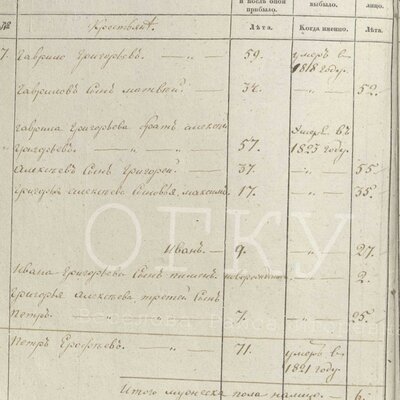 и послѣ оной прибыло.
выбыло.
лицо.
№
Крестьянъ.
Лѣта.
Когда именно.
Лѣта.
7. Гаврило Григорьевъ. — „ — 59. умеръ въ 1818 году.
Гавриловъ сынъ Матвѣй. 34. — „ — 52.
Гаврила Григорьева братъ Алексѣй
Григорьевъ. — „ — 57. Умеръ въ 1823 году.
Алексѣевъ сынъ Григорей 37. — „ — 55.
Григорья Алексѣева сыновья, Максимъ 17. — „ — 35.
Иванъ. — „ 9. — „ — 27.
Ивана Григорьева сынъ новорожденный — „ — 2.
Григорья Алексѣева третей сынъ
Петръ. — „ — 7. — „ — 25.
Петръ Ерофѣевъ. — „ — 71. умеръ въ 1821 году.
Итого мужеска пола налицо. — „ 6.
ОГКУ